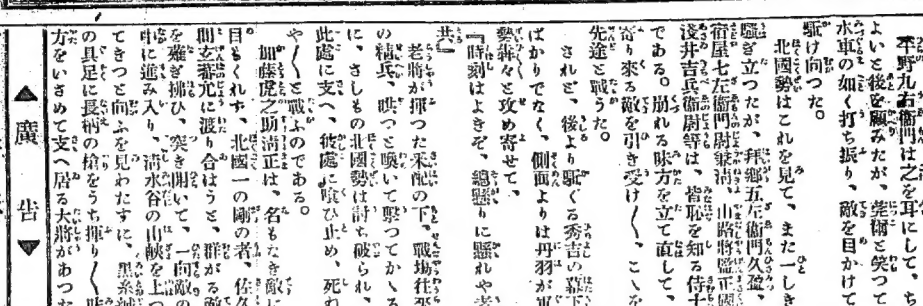 平野九右衞門は之を耳にして、
よいと後を顧みたが、莞爾と笑つて
水車の如く打ち振り、敵を目かけて
駈け向つた。
北國勢はこれを見て、また一しき
騷ぎ立つたが、拜鄕五左衞門久盈、
宿屋七左衞門尉 山路將監正國
淺井吉兵衞尉等は、皆恥を知る侍十
である。崩れる味方を立て直して、
寄り來る敵を引き受け〳〵、こゝを
先途と戰うた。
されど、後より駈くる秀吉の幕下
ばかりでなく、側面よりは丹羽が軍
勢犇々と攻め寄せて、
『時刻はよきぞ、總懸りに懸れや者
共』
老將が揮つた采配の下、戰場往
の精兵、哄つと喚いて擊つてかゝる
に、さしもの北國勢は討ち破られ、
此處に支へ、彼處に喰ひ止め、死
や〳〵と戰ふのである。
加藤虎之助淸正は、名もなき敵に
目もくれず、北國一の剛の者、佐久
間玄蕃允に渡り合はうと、群がる敵
を薙ぎ拂ひ、突き開いて、一向敵の
中に進み入り、淸水谷の山峽を上つ
てきつと向ふを見わたすに、黑糸
の具足に長柄の槍をうち揮り〳〵味
方をいさめて支へ居る大將があつた
▲廣告▼